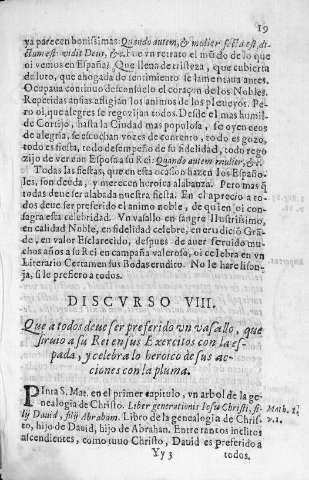 19
ya parecen bonissimas. Quando autem, & mulier facta est, di-
ctum est: vidit Deus, &c. Fue vn retrato el mūdo de lo que
oi vemos en España. Que llena de tristeza, que cubierta
de luto, que ahogada de sentimiento se lamentaua antes.
Ocupaua continuo desconsuelo el coraçon de los Nobles.
Repetidas ansias afligian los animos de los plebeyos. Pe-
ro oi, que alegres se regozijan todos. Desde el mas humil-
de Cortijo, hasta la Ciudad mas populosa, se oyen ecos
de alegria, se escuchan vozes de contento, todo es gozo,
todo es fiesta, todo desempeño de su fidelidad, todo rego
zijo de ver con Esposa a su Rei: Quando autem mulier, &c.
Todas las fiestas, que en esta ocasion hazen los Españo-
les, son deuda, y merecen heroica alabanza. Pero mas q̃
todas deue ser alabada nuestra fiesta. En el aprecio a to-
dos deue ser preferido el animo noble, de quien oi con-
sagra esta celebridad. Vn vasallo en sangre Ilustrissimo,
en calidad Noble, en fidelidad celebre, en erudiciō Grā-
de, en valor Esclarecido, despues de auer seruido mu-
chos años a su Rei en campaña valeroso, oi celebra en vn
Literario Certamen sus Bodas erudito. No le hare lison-
ja, si le prefiero a todos.
DISCVRSO VIII.
Que a todos deue ser preferido vn vasallo, que
siruio a su Rei en sus Exercitos con la es-
pada, y celebra lo heroico de sus ac-
ciones con la pluma.
PInta S. Mat. en el primer capitulo, vn arbol de la ge-
nealogia de Christo. Liber generationis Iesu Christi, fi-
lij Dauid, filij Abraham. Libro de la genealogia de Chris-
to, hijo de Dauid, hijo de Abrahan. Entre tantos inclitos
ascendientes, como tuuo Christo, Dauid es preferido a
Math. 1.
v. 1.
Yy 3
todos.